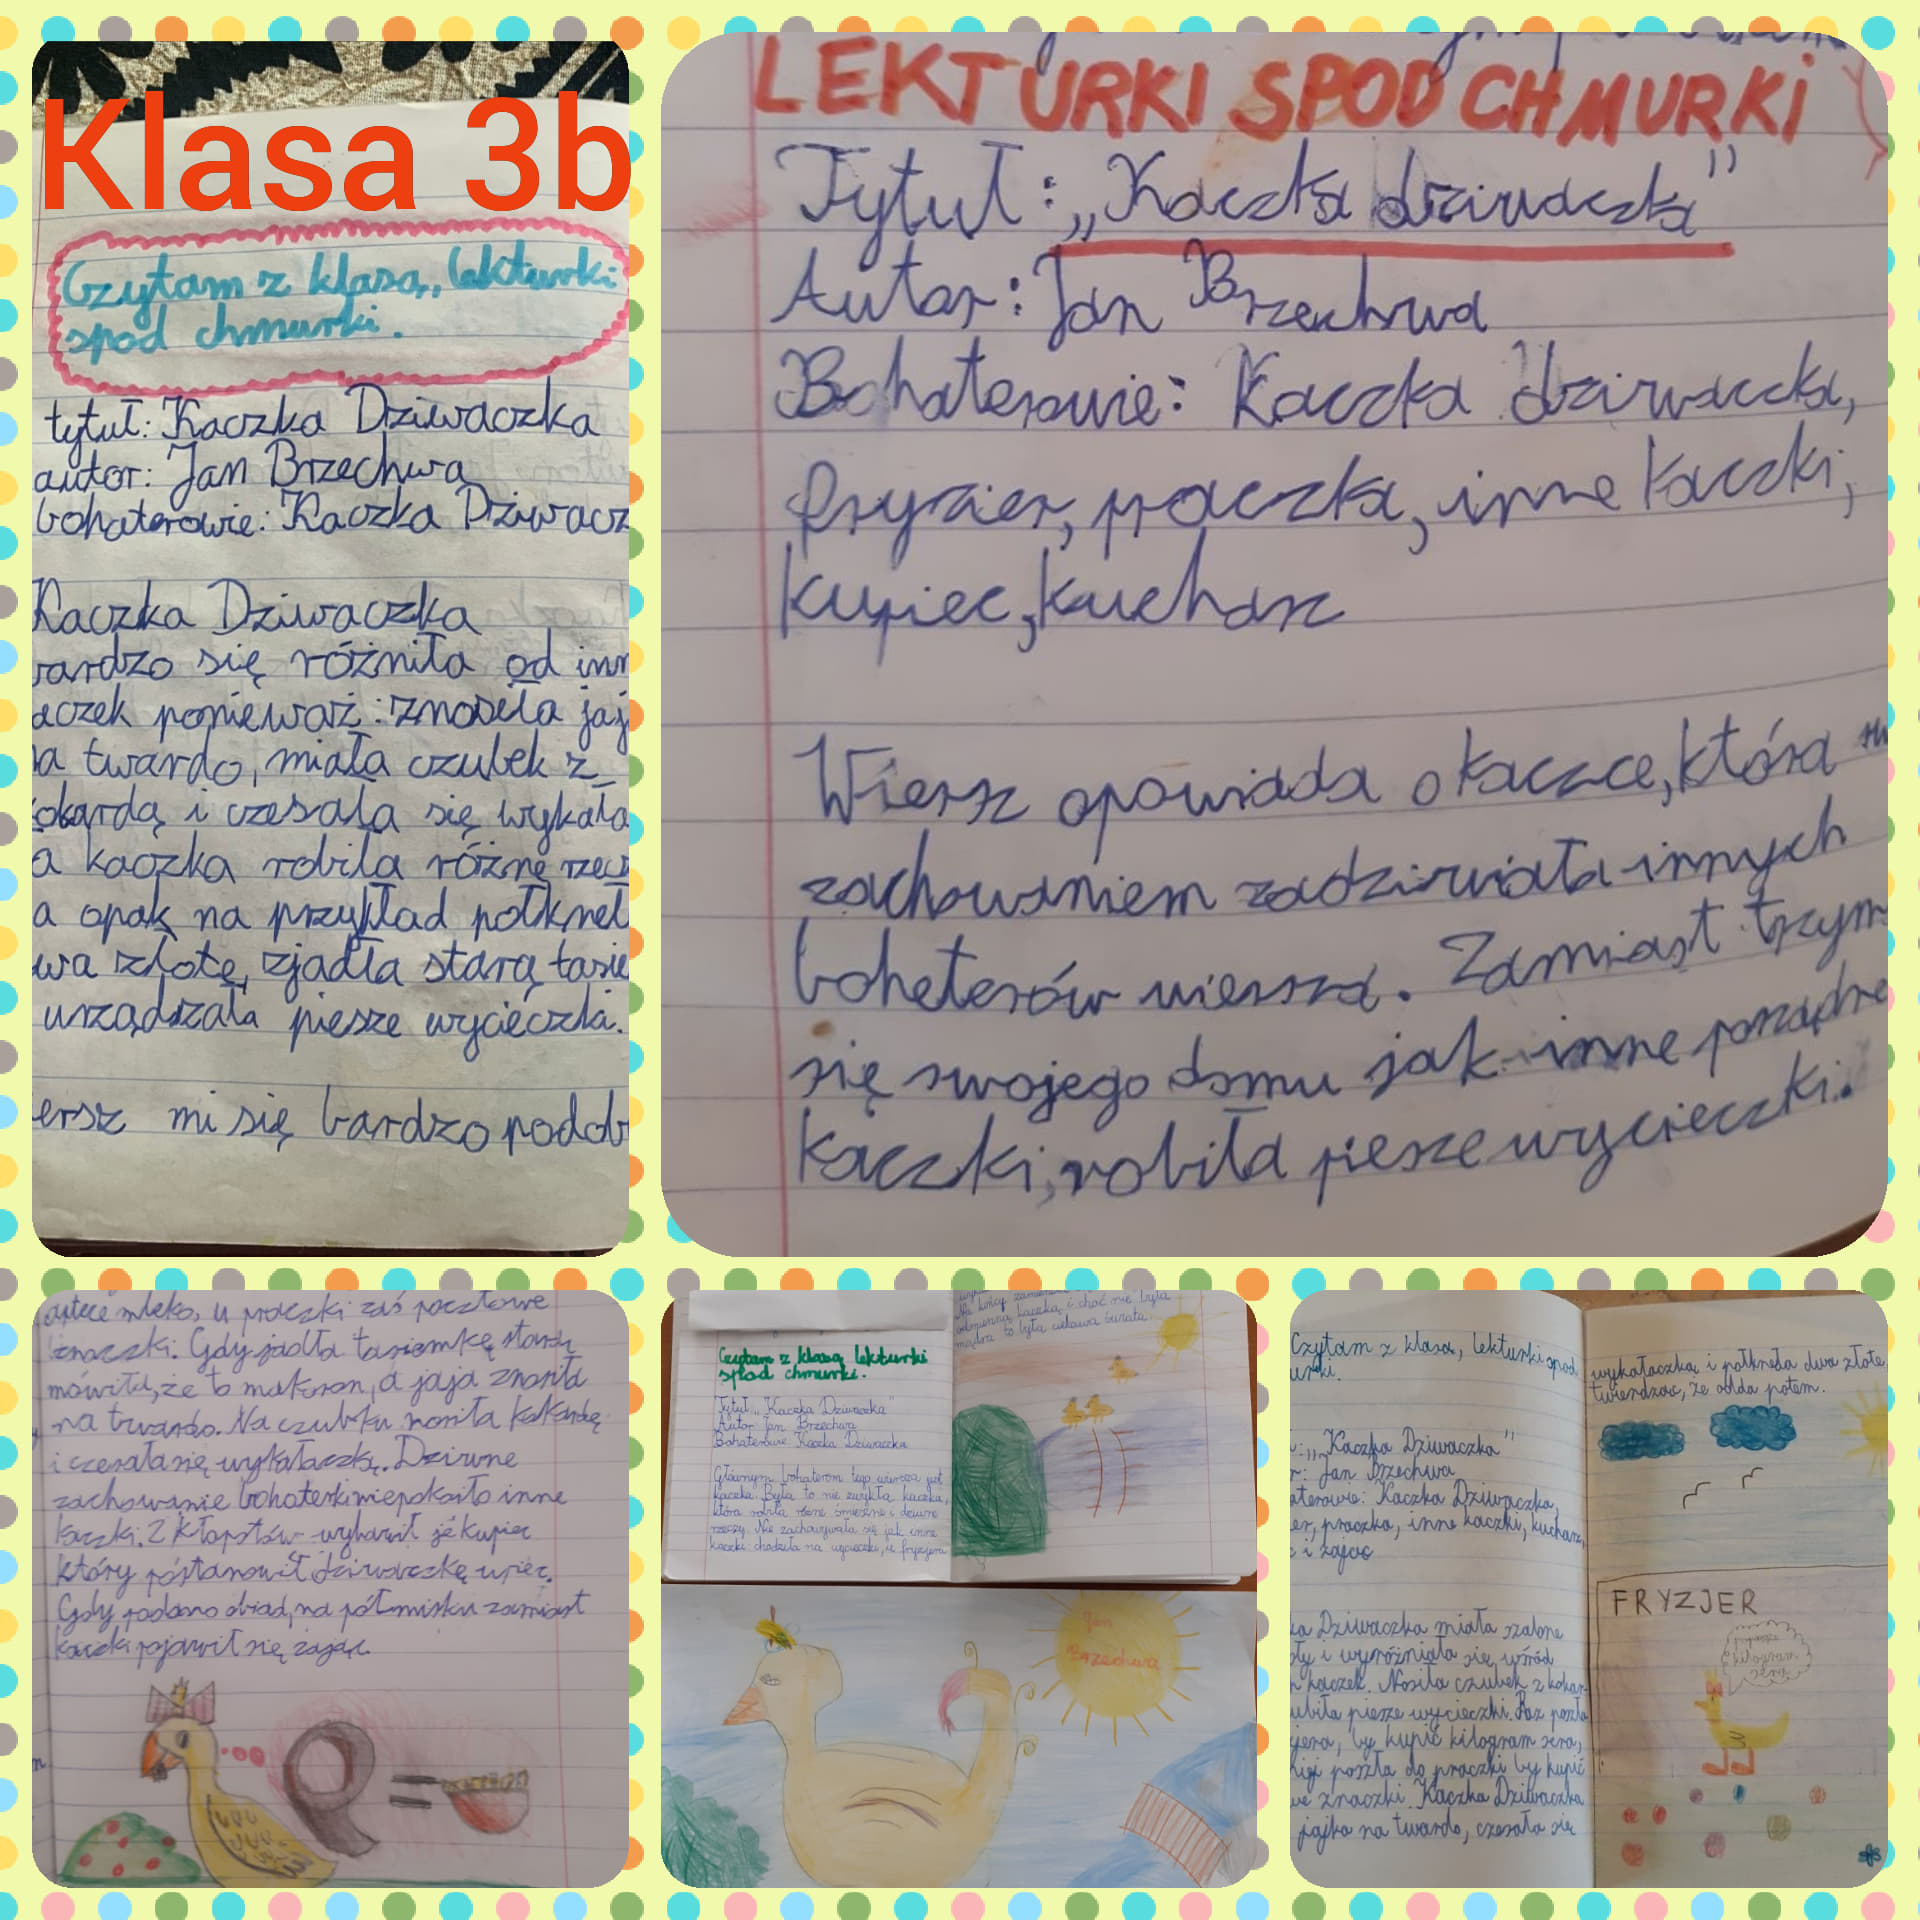 Klasa 3b
Czytam z klasą,, lekturki
spod chmurki.
tytuł: Kaczka Dziwaczka
autor: Jan Brzechwa
bohaterowie: Kaczka Dziwacz
Kaczka Dziwaczka
bardzo się różniła od inn
aczek ponieważ: znosiła jaj
na twardo, miała czubek z
okardą i czesała się wykała
a kaczka robiła różne rzecz
a opak na przykład połknęł
wa złote, zjadła starą tasie
urządzała piesze wycieczki.
ersz mi się bardzo podob
LEKTURKI SPOD CHMURKI
Tytuł: „Kaczka dziwaczka"
Autor: Jan Brzechwa
Bohaterowie: Kaczka dziwaczka,
fryzier, praczka, inne kaczki,
kupiec, kucharz
Wiersz opowiada o kaczce, która sw
zachowaniem zadziwiała innych
boheterów wiersza. Zamiast trzym
się swojego domu jak inne porządne
kaczki, robiła piesze wycieczki.
mleko, u praczki zaś pocztowe
znaczki. Gdy jadła tasiemkę starą
mówiła, że to makaron, a jaja znosiła
na twardo. Na czubku nosiła kokardę
i czesała się wykałaczką. Dziwne
zachowanie bohaterki niepokoiło inne
kaczki. Z kłopotów wybawił je kupiec
który postanowił dziwaczkę upiec.
Gdy podano obiad, na półmisku zamiast
kaczki pojawił się zając.
Na końcu
odmienną kaczką i choć nie była
mądra to była ciekawa świata.
Czytam z klasą lekturki
spod chmurki.
Tytuł: „Kaczka Dziwaczka"
Autor: Jan Brzechwa
Bohaterowie: Kaczka Dziwaczka
Głównym bohaterem tego wiersza jest
kaczka. Była to nie zwykła kaczka,
która robiła różne śmieszne i dziwne
rzeczy. Nie zachowywała się jak inne
kaczki chodziła na wycieczki, u fryzjera
Jan
Brzechwa
Czytam z klasą, lekturki spod
urki.
: „Kaczka Dziwaczka"
r: Jan Brzechwa
aterowie: Kaczka Dziwaczka,
er, praczka, inne kaczki, kucharz,
c i zając
ka Dziwaczka miała szalone
sły i wyróżniała się wśród
h kaczek. Nosiła czubek z kokar-
ubiła piesze wycieczki. Raz poszła
zjera, by kupić kilogram sera,
poszła do praczki by kupić
we znaczki. Kaczka Dziwaczka
jajka na twardo, czesała się
wykałaczką i połknęła dwa złote
twierdząc, że odda potem.
FRYZJER
kilogram
sera